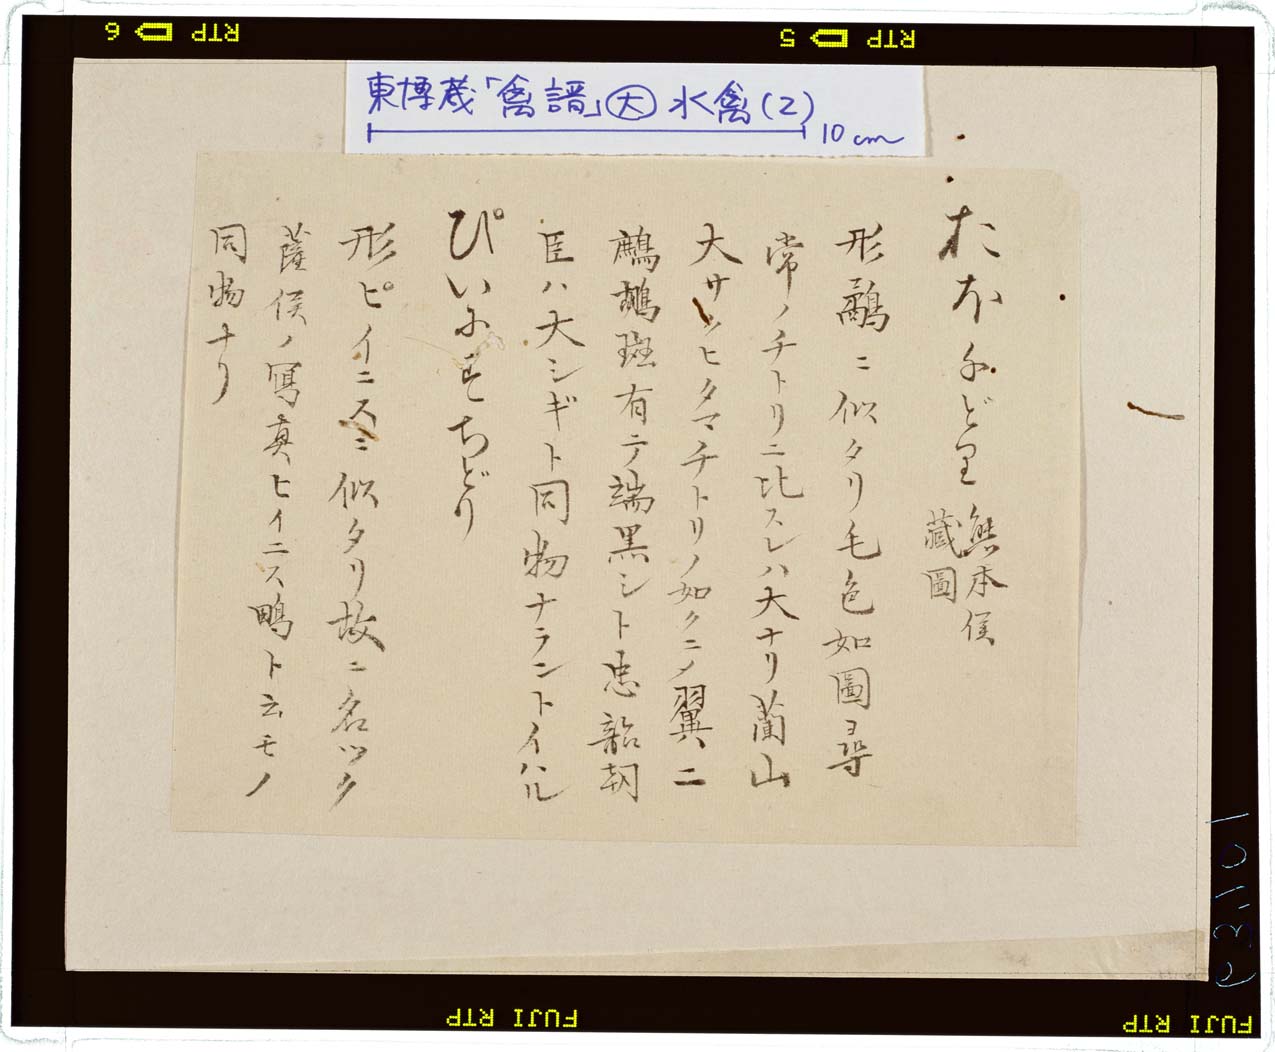 RTP 5
RTP 6
東博蔵「禽譜」大 水禽(2)
10cm
たねちどり 熊本侯
藏圖
形鷸ニ似タリ毛色如圖ヨ尋
常ノチトリニ比スレハ大ナリ蘭山
大サハヒタマチトリノ如クニメ翼ニ
鷓鴣斑有テ端黒シト忠韶朝
臣ハ大シギト同物ナラントイハル
ぴいにすちどり
形ピイニスニ似タリ故ニ名ツク
薩侯ノ寫真ヒイニス鴫ト云モノ
同物ナリ
FUJI RTP
FUJI RTP